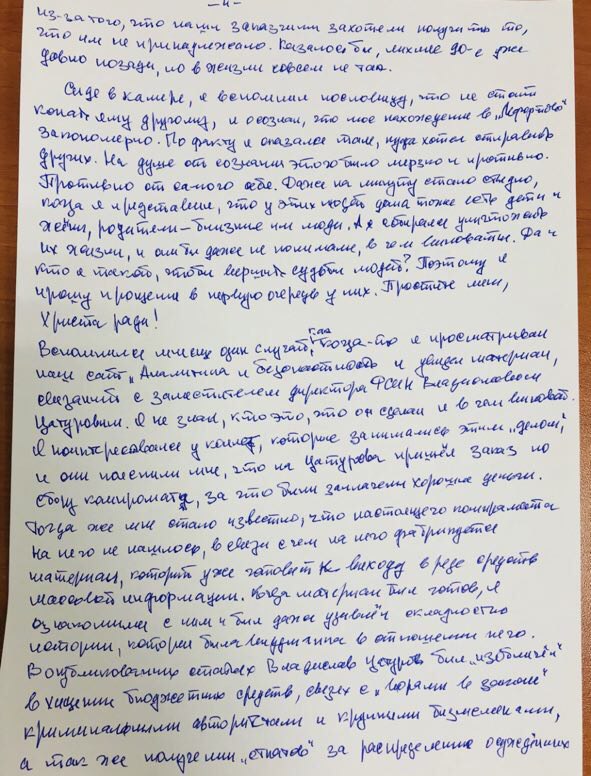 -4-
из-за того, что наши заказчики захотели получить то,
что им не принадлежало. Казалось бы, лихие 90-е уже
давно позади, но в жизни совсем не так.
Сидя в камере, я вспомнил пословицу, что не стоит
копать яму другому, и осознал, что мое нахождение в „Лефортово"
закономерно. По факту я оказался там, куда хотел отправить
других. На душе от сознания этого было мерзко и противно.
Противно от самого себе. Даже на минуту стало стыдно,
когда я представил, что у этих людей дома тоже есть дети и
жёны, родители – близкие им люди. А я собирался уничтожить
их жизни, и они бы даже не понимали, в чем виноваты. Да и
кто я такой, чтобы вершить судьбы людей? Поэтому я
прошу прощения в первую очередь у них. Простите меня,
Христа ради!
Вспомнился мне еще один случай, как когда-то я просматривал
наш сайт „Аналитика и безопасность" и увидел материал,
связанный с заместителем директора ФСИН Владиславом
Цатуровым. Я не знал, кто это, что он сделал и в чем виноват.
Я поинтересовался у коллег, которые занимались этим „делом",
и они пояснили мне, что на Цатурова пришёл заказ по
сбору компромата, за что были заплачены хорошие деньги.
Тогда же мне стало известно, что настоящего компромата
на него не нашлось, в связи с чем на него фабрикуется
материал, который уже готовят к выходу в ряде средств
массовой информации. Когда материал был готов, я
ознакомился с ним и был даже удивлён складностью
истории, которая была выдумана в отношении него.
В опубликованных статьях Владислав Цатуров был „изобличён"
в хищении бюджетных средств, связях с „ворами в законе"
криминальными авторитетами и крупными бизнесменами,
а так же получении „откатов" за распределение осуждённых